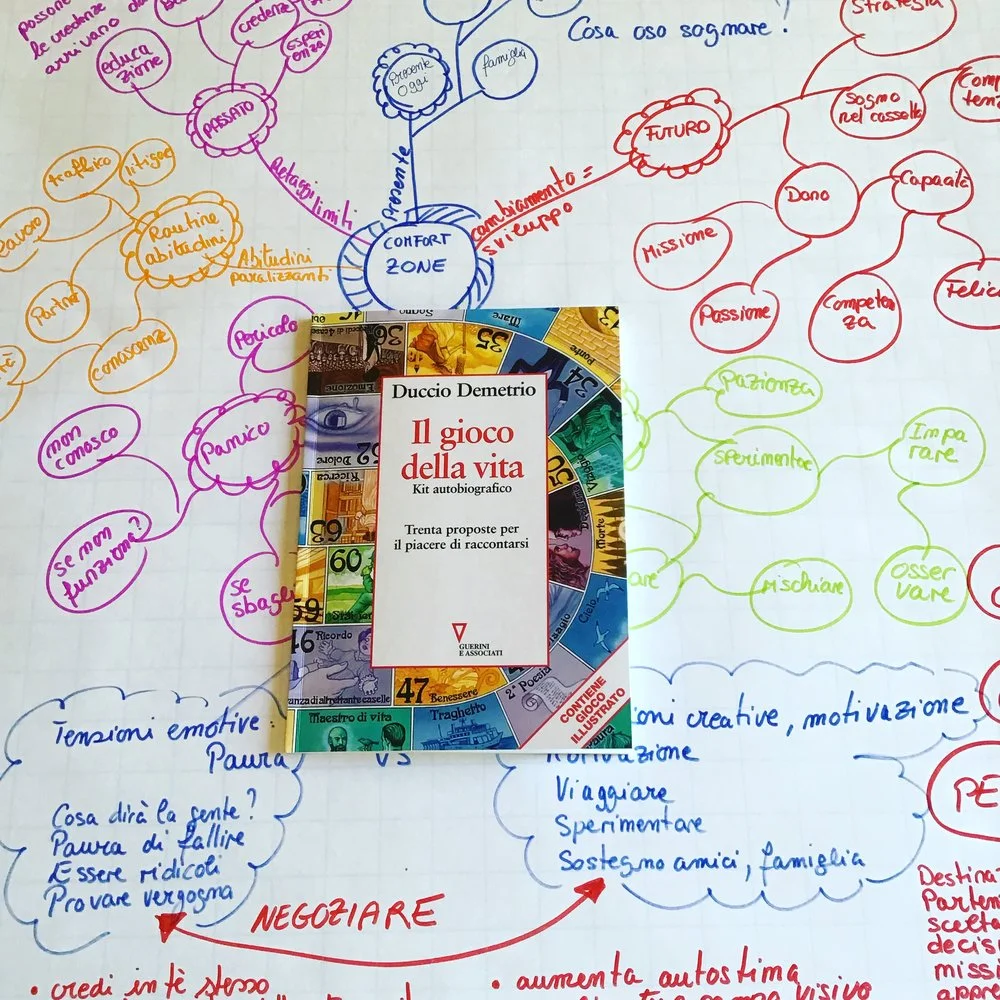 le credenze
arrivano
educa
zione
credenze
esperi
enza
PASSATO
Presente
Oggi
famiglia
Cosa oso sognare?
Strategia
Sogno
nel cassetto
FUTURO
Dono
Capacità
Missione
Passione
Competen
za
Felici
cambiamento =
sviluppo
Presente
limiti
COMFORT
ZONE
Abitudini
paralizzanti
Routine
abitudini
traffico
litigare
Lavoro
Partner
conoscenze
Pericolo
Panico
non
conosco
se non
funziona?
se
sbagli
Pazienza
sperimentare
Impa
rare
Osser
vare
Rischiare
Duccio Demetrio
Il gioco
della vita
Kit autobiografico
Trenta proposte per
il piacere di raccontarsi
GUERINI
E ASSOCIATI
CONTIENE
GIOCO
ILLUSTRATO
Sogno
Mare
Ponte
36
35
34
Emozione
Dolore
Ricerca
Viaggio
Morte
Cielo
60
59
Ricordo
47
Benessere
2ª Poesia
Maestro di vita
Traghetto
Tensioni emotive:
Paura
Cosa dirà la gente?
Paura di fallire
Essere ridicoli
Provare vergogna
VS
ioni creative, motivazione
Motivazione
Viaggiare
Sperimentare
Sostegno amici, famiglia
NEGOZIARE
• credi in tè stesso
• aumenta autostima
visivo
PE
Destina
Parten
scelta
decisi
missi
appre